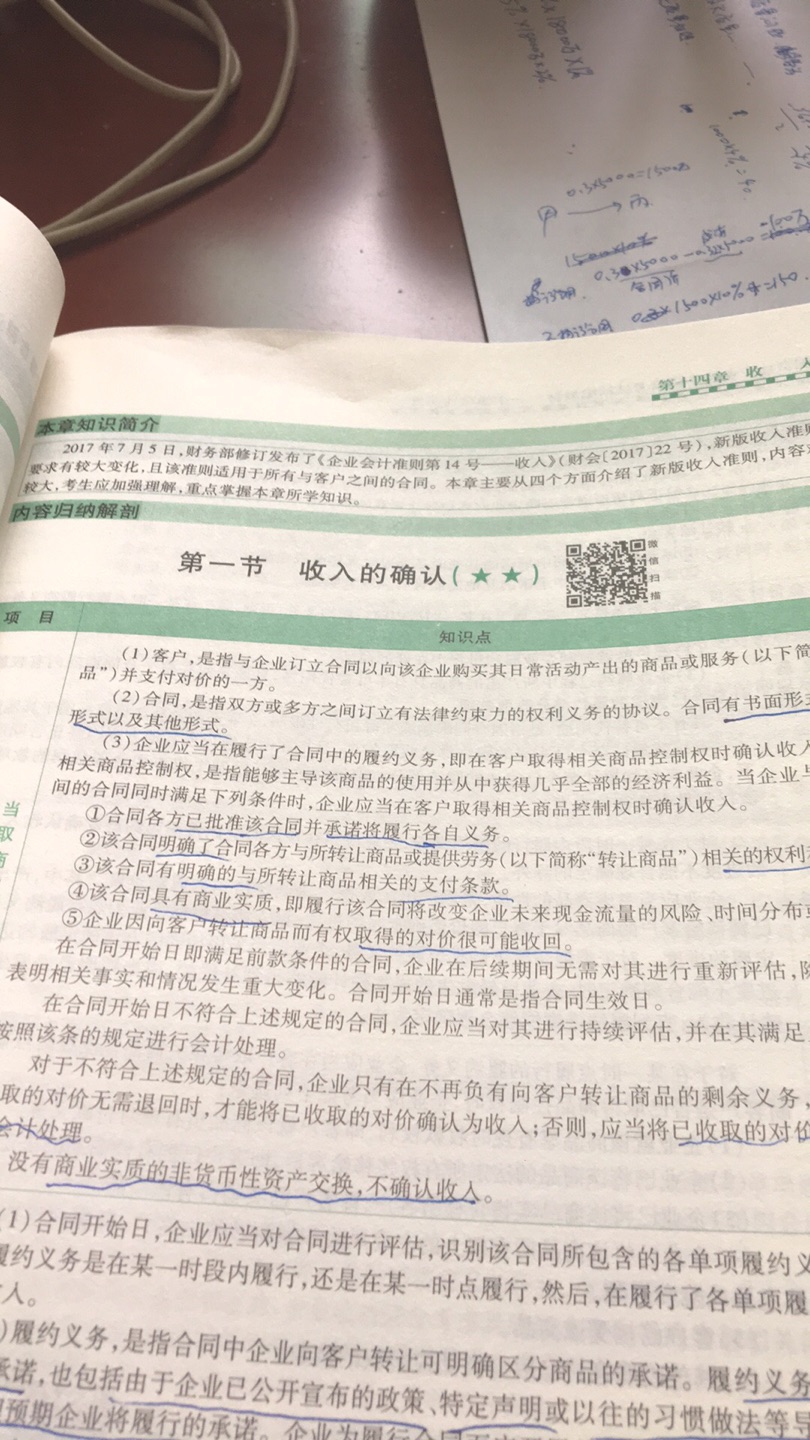 0.3×5000=1500万
1000×4%=40
甲 → 丙
第十四章 收 入
本章知识简介
2017年7月5日,财务部修订发布了《企业会计准则第14号——收入》(财会〔2017〕22号),新版收入准则
要求有较大变化,且该准则适用于所有与客户之间的合同。本章主要从四个方面介绍了新版收入准则,内容
较大,考生应加强理解,重点掌握本章所学知识。
内容归纳解剖
第一节 收入的确认(★★)
微信扫描
项 目
知识点
(1)客户,是指与企业订立合同以向该企业购买其日常活动产出的商品或服务(以下简
品”)并支付对价的一方。
(2)合同,是指双方或多方之间订立有法律约束力的权利义务的协议。合同有书面形式
形式以及其他形式。
(3)企业应当在履行了合同中的履约义务,即在客户取得相关商品控制权时确认收入
相关商品控制权,是指能够主导该商品的使用并从中获得几乎全部的经济利益。当企业与
间的合同同时满足下列条件时,企业应当在客户取得相关商品控制权时确认收入。
①合同各方已批准该合同并承诺将履行各自义务。
②该合同明确了合同各方与所转让商品或提供劳务(以下简称“转让商品”)相关的权利
③该合同有明确的与所转让商品相关的支付条款。
④该合同具有商业实质,即履行该合同将改变企业未来现金流量的风险、时间分布或
⑤企业因向客户转让商品而有权取得的对价很可能收回。
在合同开始日即满足前款条件的合同,企业在后续期间无需对其进行重新评估,除
表明相关事实和情况发生重大变化。合同开始日通常是指合同生效日。
在合同开始日不符合上述规定的合同,企业应当对其进行持续评估,并在其满足
按照该条的规定进行会计处理。
对于不符合上述规定的合同,企业只有在不再负有向客户转让商品的剩余义务,
取的对价无需退回时,才能将已收取的对价确认为收入;否则,应当将已收取的对价
会计处理。
没有商业实质的非货币性资产交换,不确认收入。
当
取
商
(1)合同开始日,企业应当对合同进行评估,识别该合同所包含的各单项履约义
履约义务是在某一时段内履行,还是在某一时点履行,然后,在履行了各单项履
入。
)履约义务,是指合同中企业向客户转让可明确区分商品的承诺。履约义务
承诺,也包括由于企业已公开宣布的政策、特定声明或以往的习惯做法等导
预期企业将履行的承诺。企业为履行合同